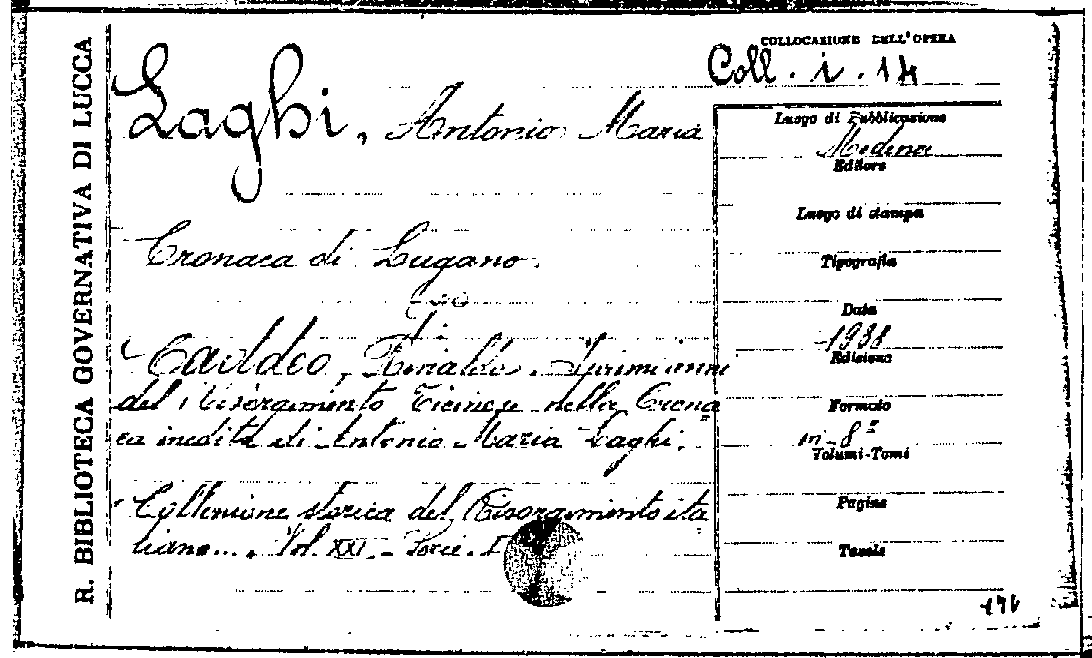 R. BIBLIOTECA GOVERNATIVA DI LUCCA
COLLOCAZIONE DELL'OPERA
Coll. i. 14
Laghi, Antonio Maria
Cronaca di Lugano.
Caddeo, Rinaldo. I primi anni
del Risorgimento Ticinese nella Crona
ca inedita di Antonio Maria Laghi.
Collezione storica del Risorgimento ita
liano... Vol. XXI. - Serie. I
Luogo di Pubblicazione
Modena
Editore
Luogo di stampa
Tipografia
Data
1938
Edizione
Formato
in-8º
Volumi-Tomi
Pagine
Tavole